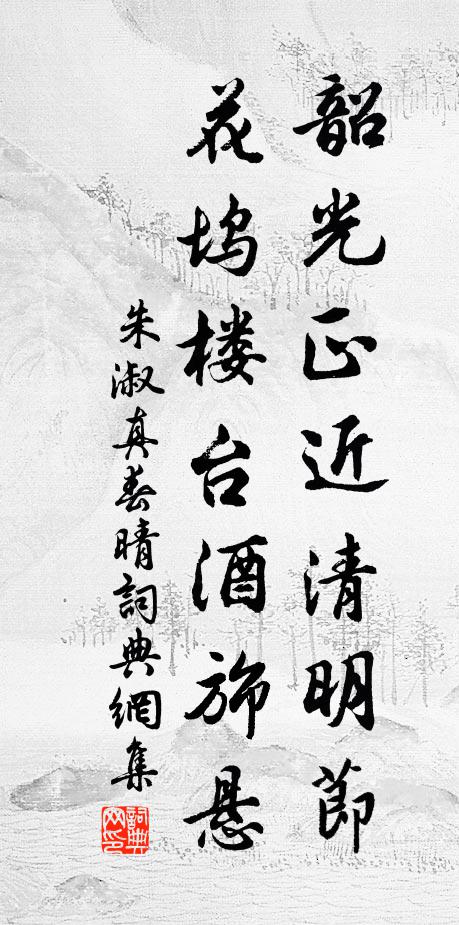 韶光正近清明節
花塢楼台酒旆悬
朱淑真春晴詞典網集
詞典网印